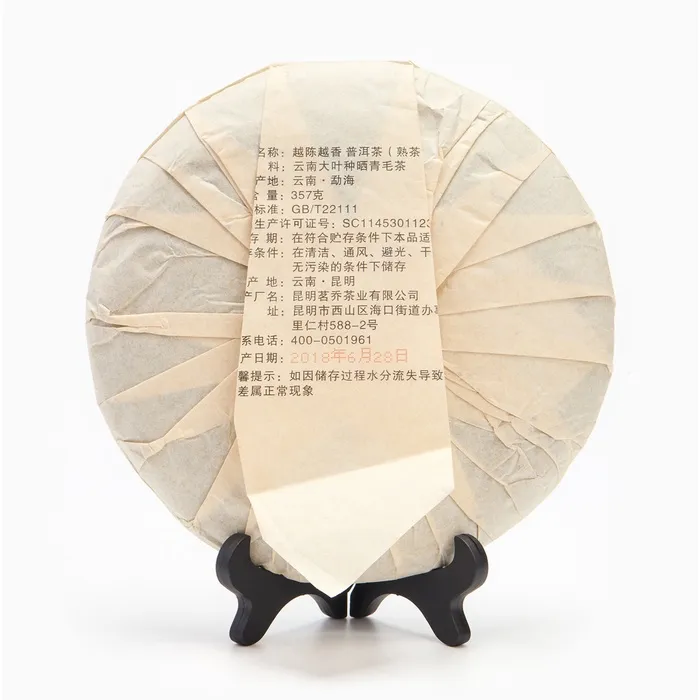 名称：越陈越香 普洱茶（熟茶
料：云南大叶种晒青毛茶
产地：云南·勐海
含 量：357克
标准：GB/T22111
生产许可证号：SC1145301123
存 期：在符合贮存条件下本品适
存条件：在清洁、通风、避光、干
无污染的条件下储存
产 地：云南·昆明
产厂名：昆明茗乔茶业有限公司
址：昆明市西山区海口街道办
里仁村588-2号
系电话：400-0501961
产日期：2018年6月28日
馨提示：如因储存过程水分流失导致
差属正常现象